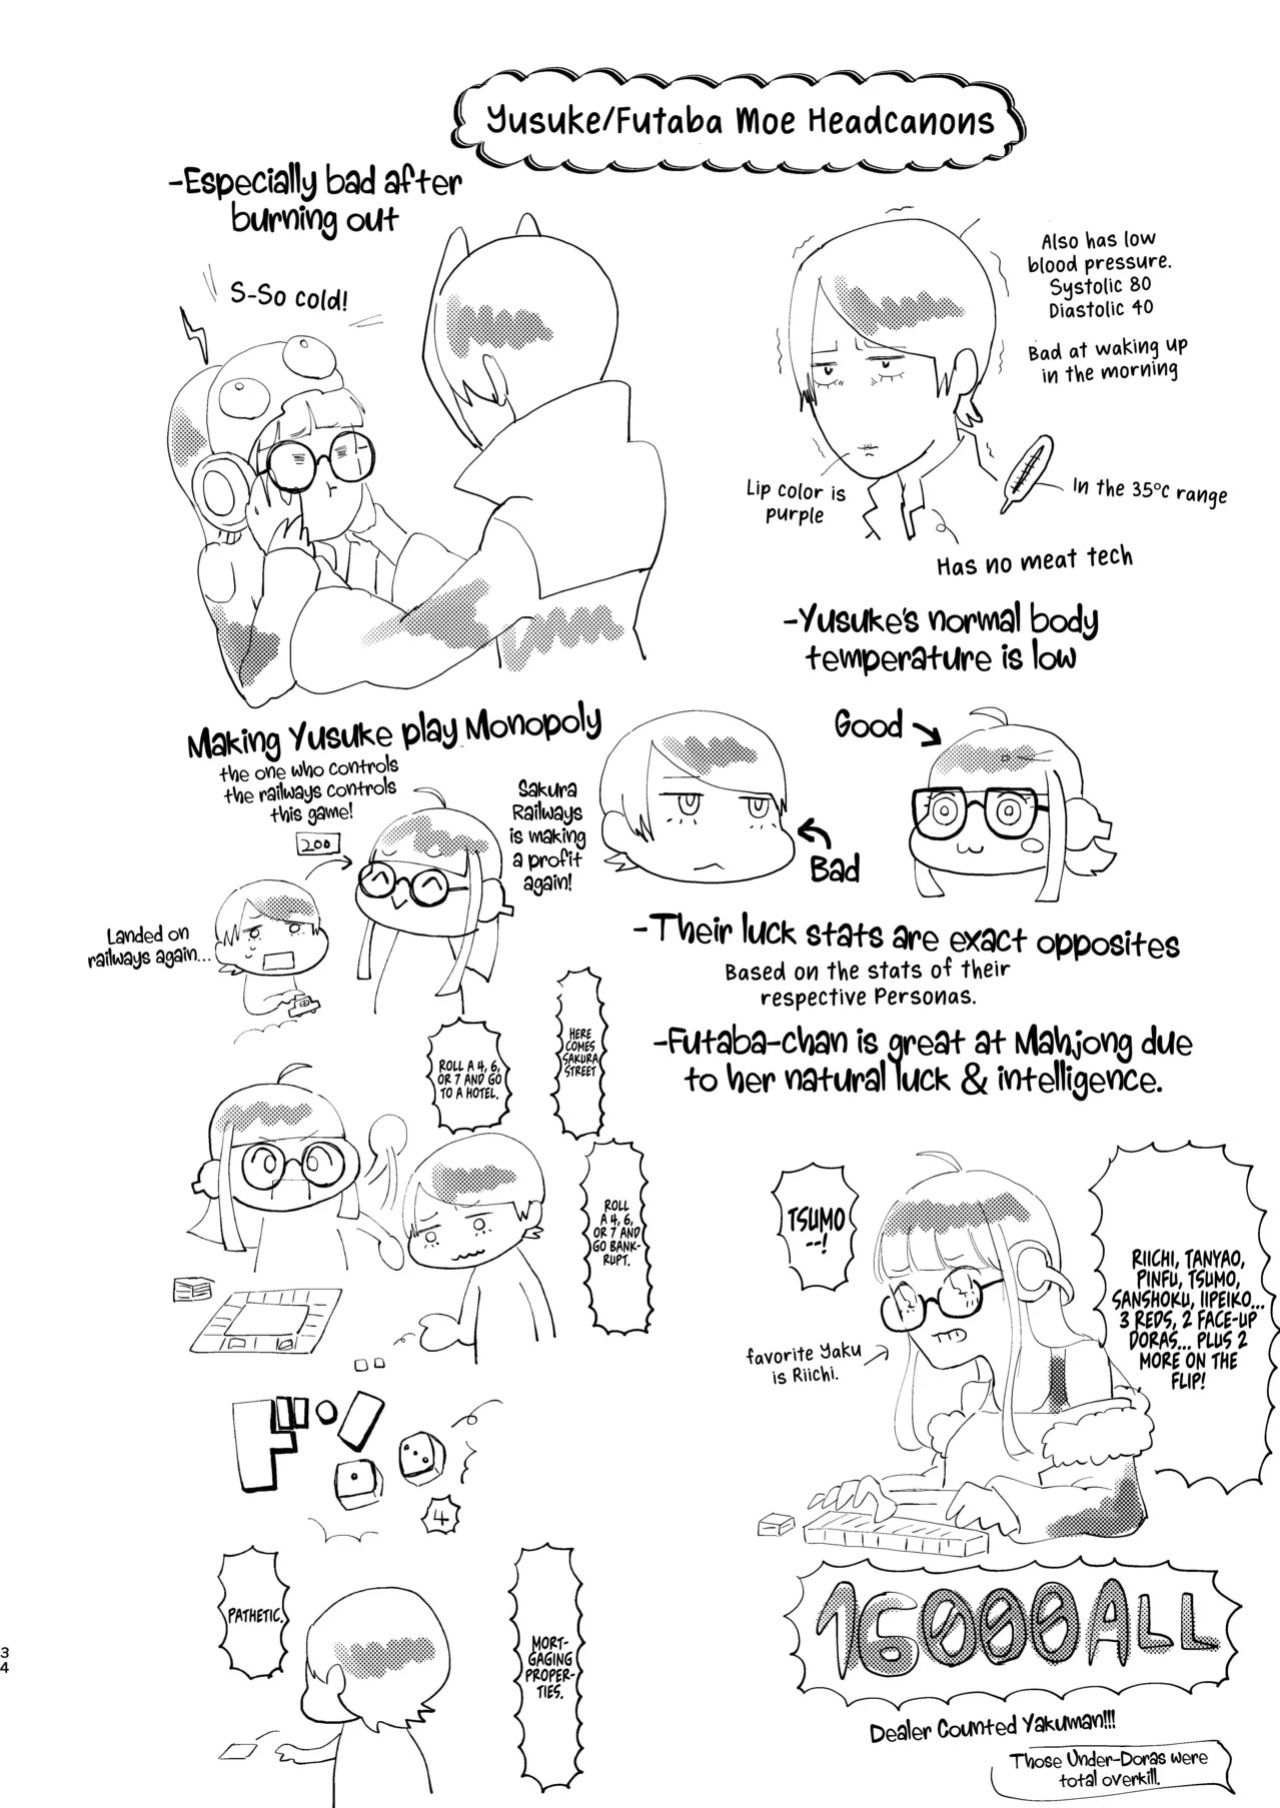 Yusuke/Futaba Moe Headcanons
-Especially bad after
burning out
S-So cold!
Also has low
blood pressure.
Systolic 80
Diastolic 40
Bad at waking up
in the morning
Lip color is
purple
In the 35°C range
Has no meat tech
-Yusuke's normal body
temperature is low
Making Yusuke play Monopoly
the one who controls
the railways controls
this game!
200
Sakura
Railways
is making
a profit
again!
Landed on
railways again...
Good
Bad
-Their luck stats are exact opposites
Based on the stats of their
respective Personas.
-Futaba-chan is great at Mahjong due
to her natural luck & intelligence.
HERE
COMES
SAKURA
STREET
ROLL A 4, 6,
OR 7 AND GO
TO A HOTEL.
ROLL
A 4, 6,
OR 7 AND
GO BANK-
RUPT.
TSUMO
--!
RIICHI, TANYAO,
PINFU, TSUMO,
SANSHOKU, IIPEIKO...
3 REDS, 2 FACE-UP
DORAS... PLUS 2
MORE ON THE
FLIP!
favorite Yaku
is Riichi.
ドン
4
PATHETIC.
MORT-
GAGING
PROPER-
TIES.
16000ALL
Dealer Counted Yakuman!!!
Those Under-Doras were
total overkill.
34